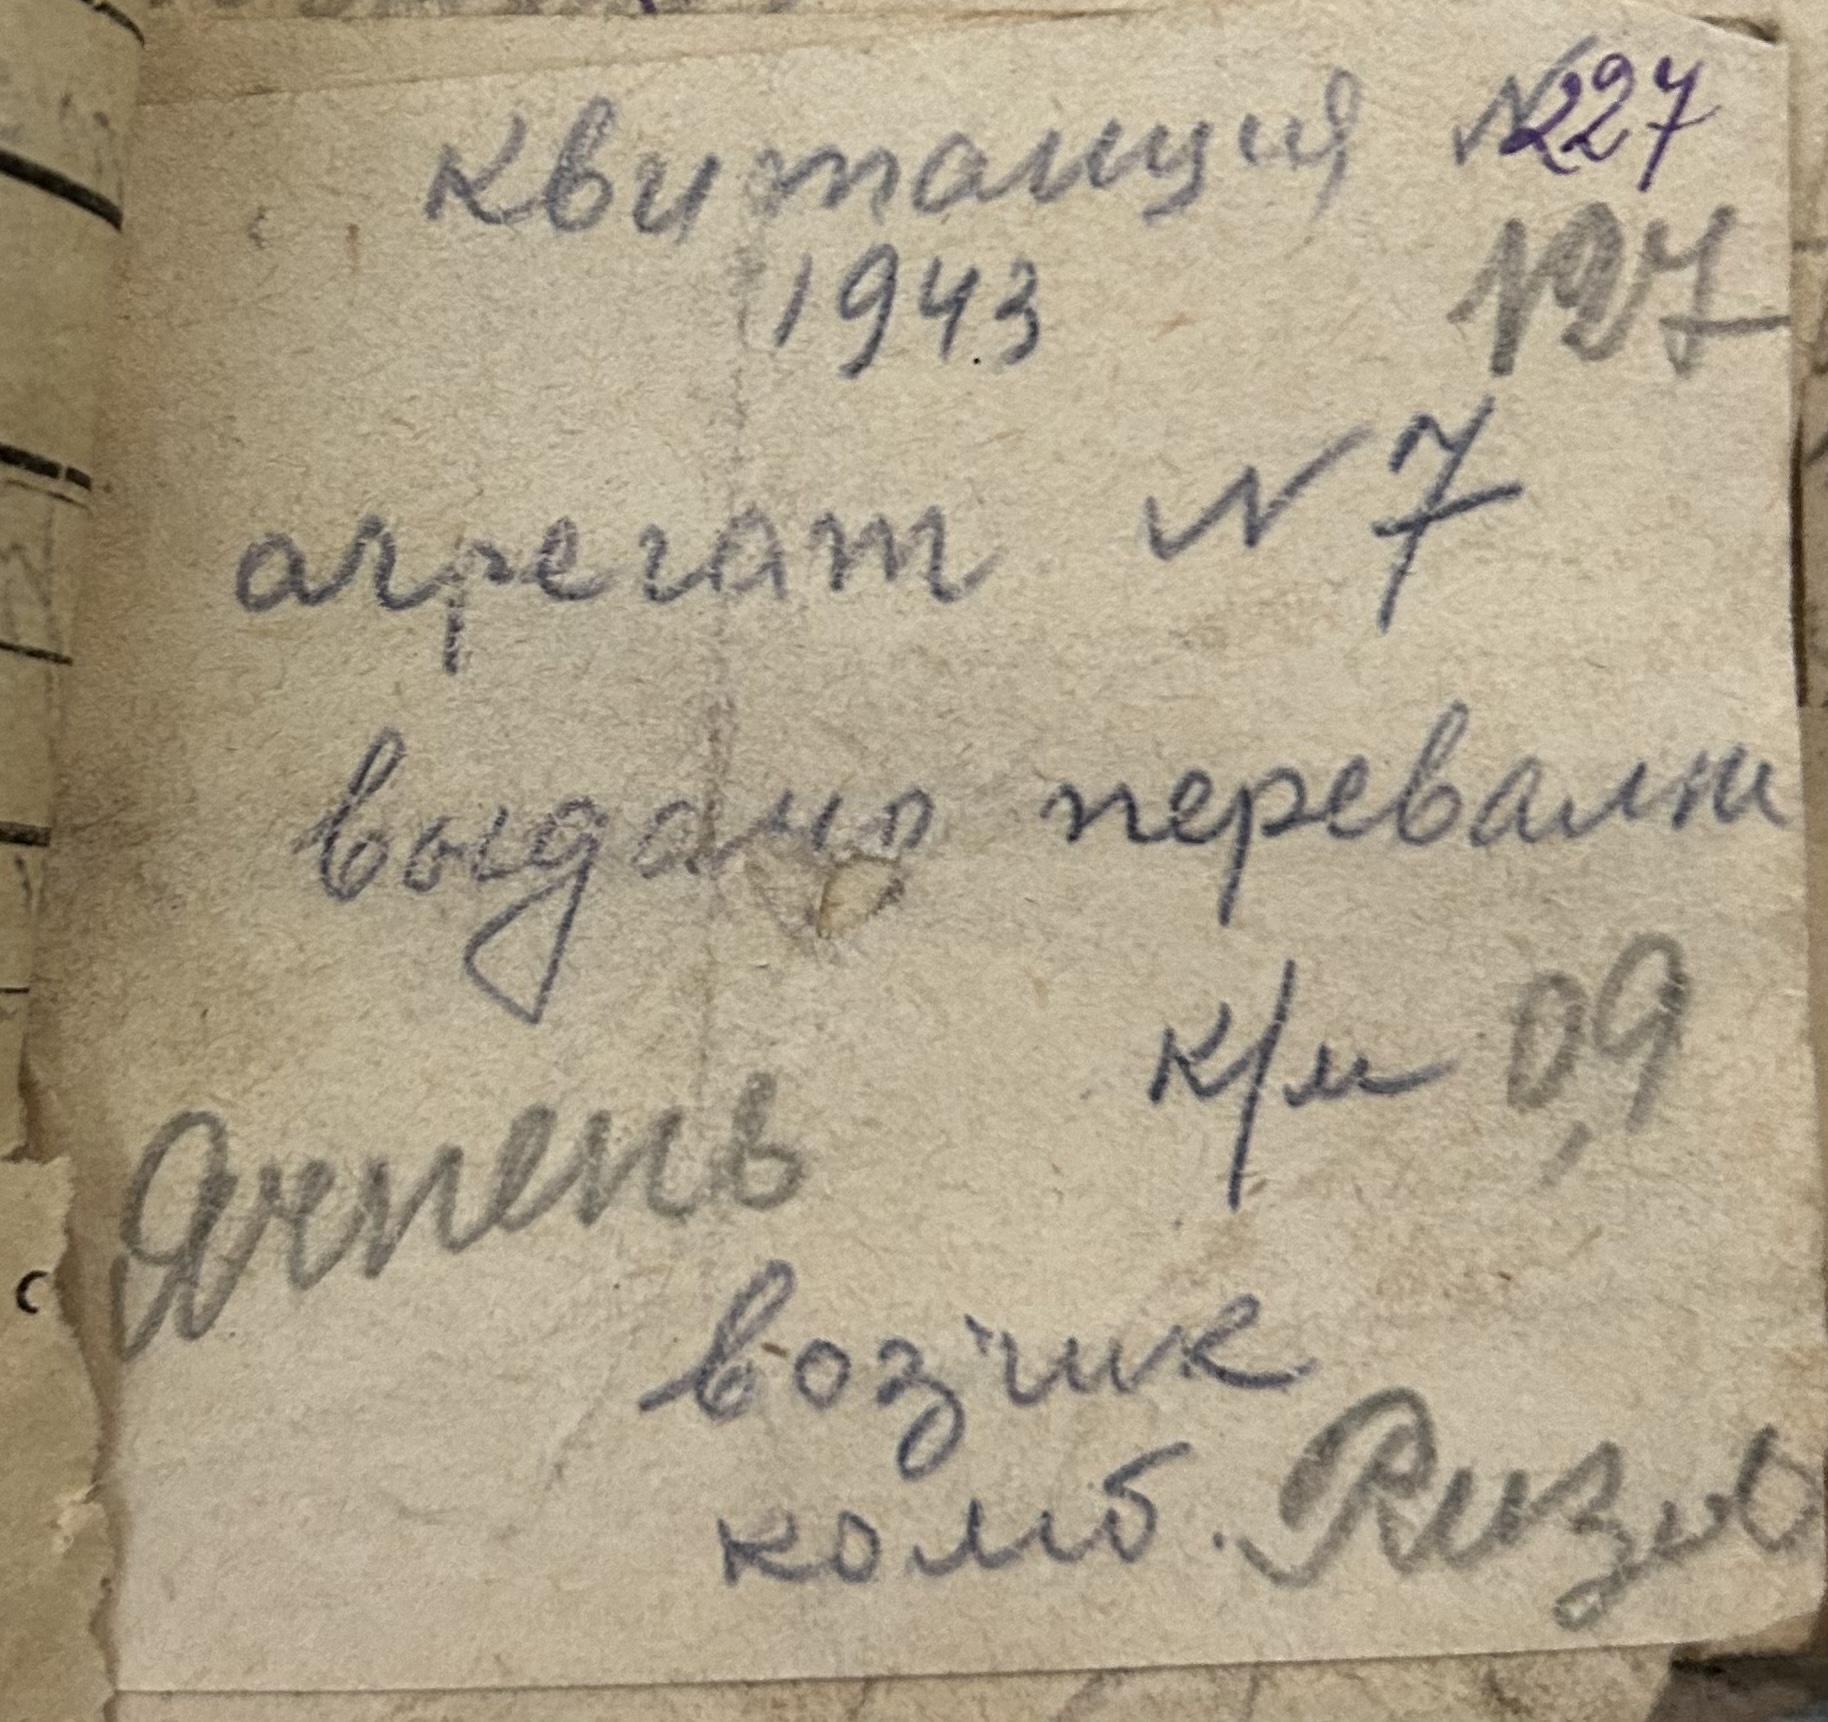 квитанция № 227
1943 127
агрегат № 7
выдано перевалки
к/м 0,9
Ячмень
возчик
комб.